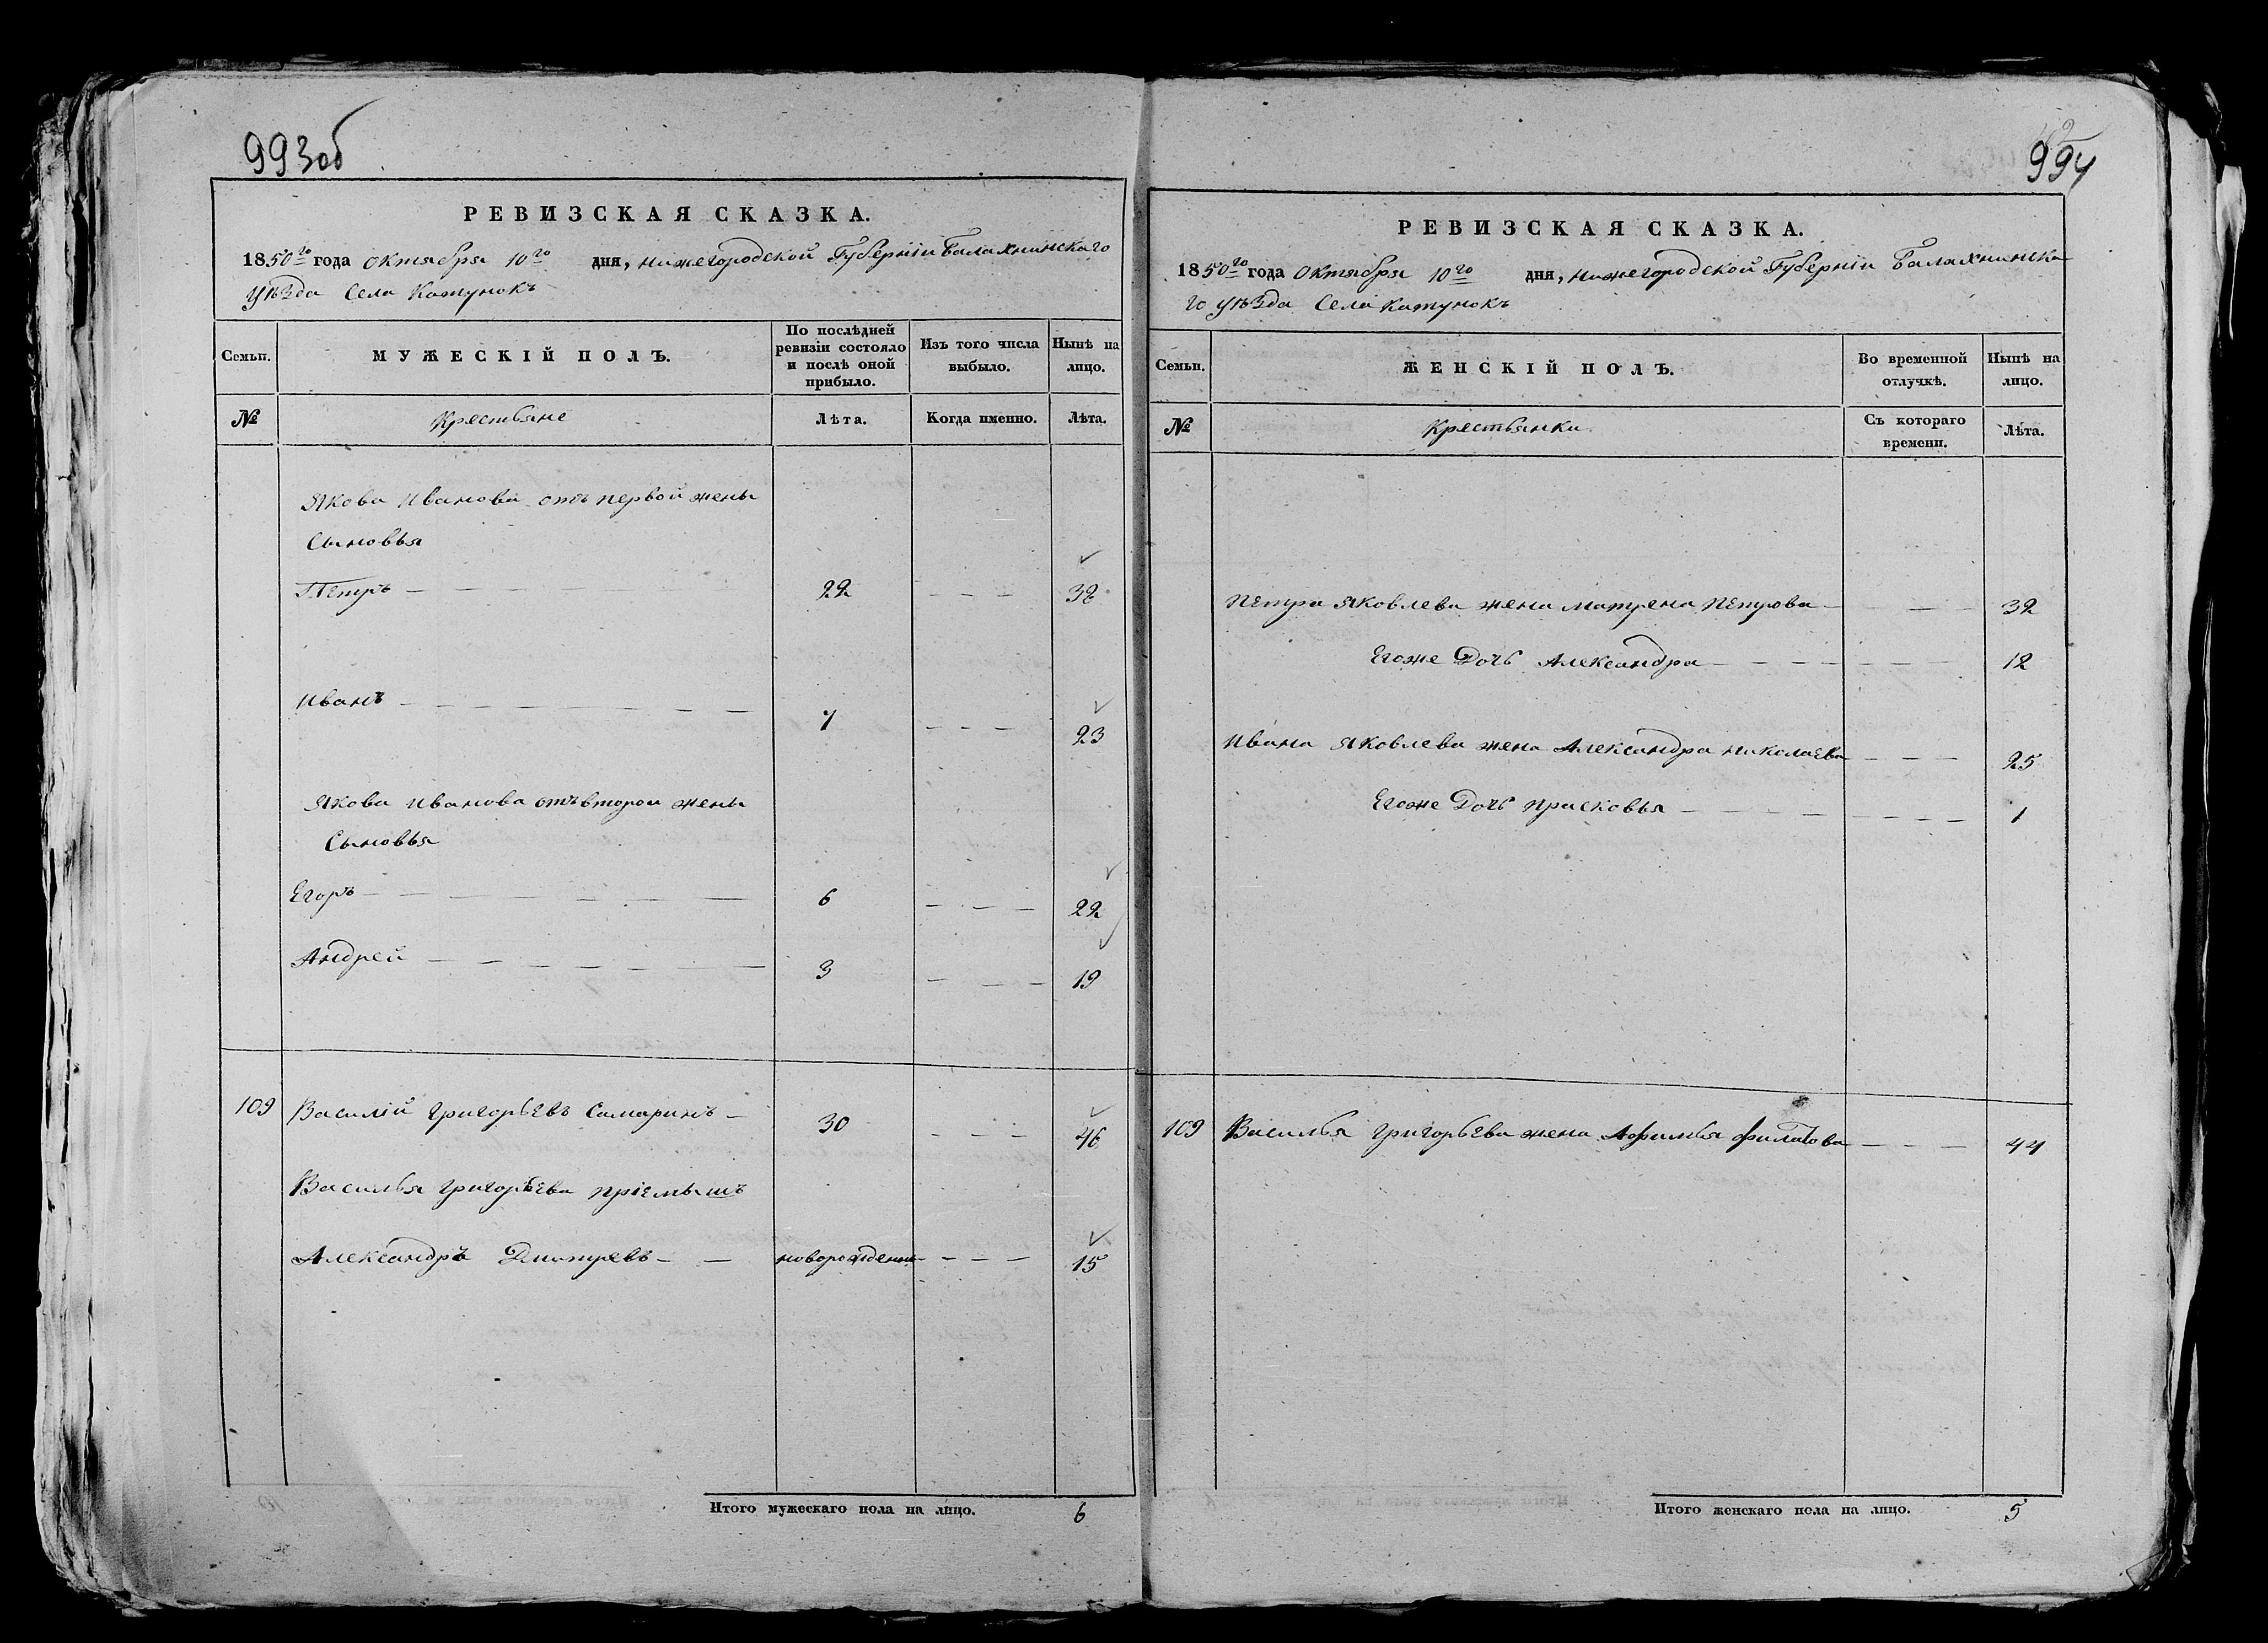 993об
РЕВИЗСКАЯ СКАЗКА.
1850го года Октября 10го дня, Нижегородской Губерніи Балахнинскаго
Уѣзда Села Катунокъ
Семьи.
МУЖЕСКІЙ ПОЛЪ.
По послѣдней ревизіи состояло и послѣ оной прибыло.
Изъ того числа выбыло.
Нынѣ на лицо.
№
Крестьяне
Лѣта.
Когда именно.
Лѣта.
Якова Иванова отъ первой жены
Сыновья
Петръ — 22 — 38
Иванъ — 7 — 23
Якова Иванова отъ второй жены
Сыновья
Егоръ — 6 — 22
Андрей — 3 — 19
109 Василій Григорьевъ Самаринъ — 30 — 46
Василья Григорьева пріемышъ
Александръ Дмитревъ — новорожденн — 15
Итого мужескаго пола на лицо. 6
994
РЕВИЗСКАЯ СКАЗКА.
1850го года Октября 10го дня, Нижегородской Губерніи Балахнинска
го уѣзда Села Катунокъ
Семьи.
ЖЕНСКІЙ ПОЛЪ.
Во временной отлучкѣ.
Нынѣ на лицо.
№
Крестьянки
Съ котораго времени.
Лѣта.
Петра Яковлева жена Матрена Петрова — 32
Егоже Дочь Александра — 12
Ивана Яковлева жена Александра Николаева — 25
Егоже Дочь Прасковья — 1
109 Василья Григорьева жена Афимья Филатова — 44
Итого женскаго пола на лицо. 5